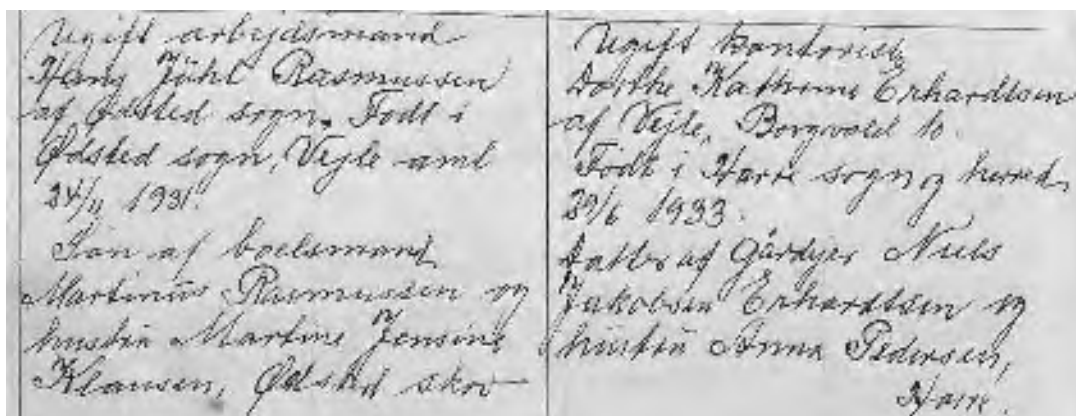 Ugift arbejdsmand
Hans Jühl Rasmussen
af Ødsted sogn. Født i
Ødsted sogn, Vejle amt
24/11 1931.
Søn af boelsmand
Martinus Rasmussen og
hustru Martine Jensine
Klausen, Ødsted skov
Ugift kontorist
Dorthe Kathrine Erhardtsen
af Vejle, Borgvold 10.
Født i Harre sogn og herred
29/6 1933.
datter af Gårdejer Niels
Jakobsen Erhardtsen og
hustru Anna Pedersen,
Harre.